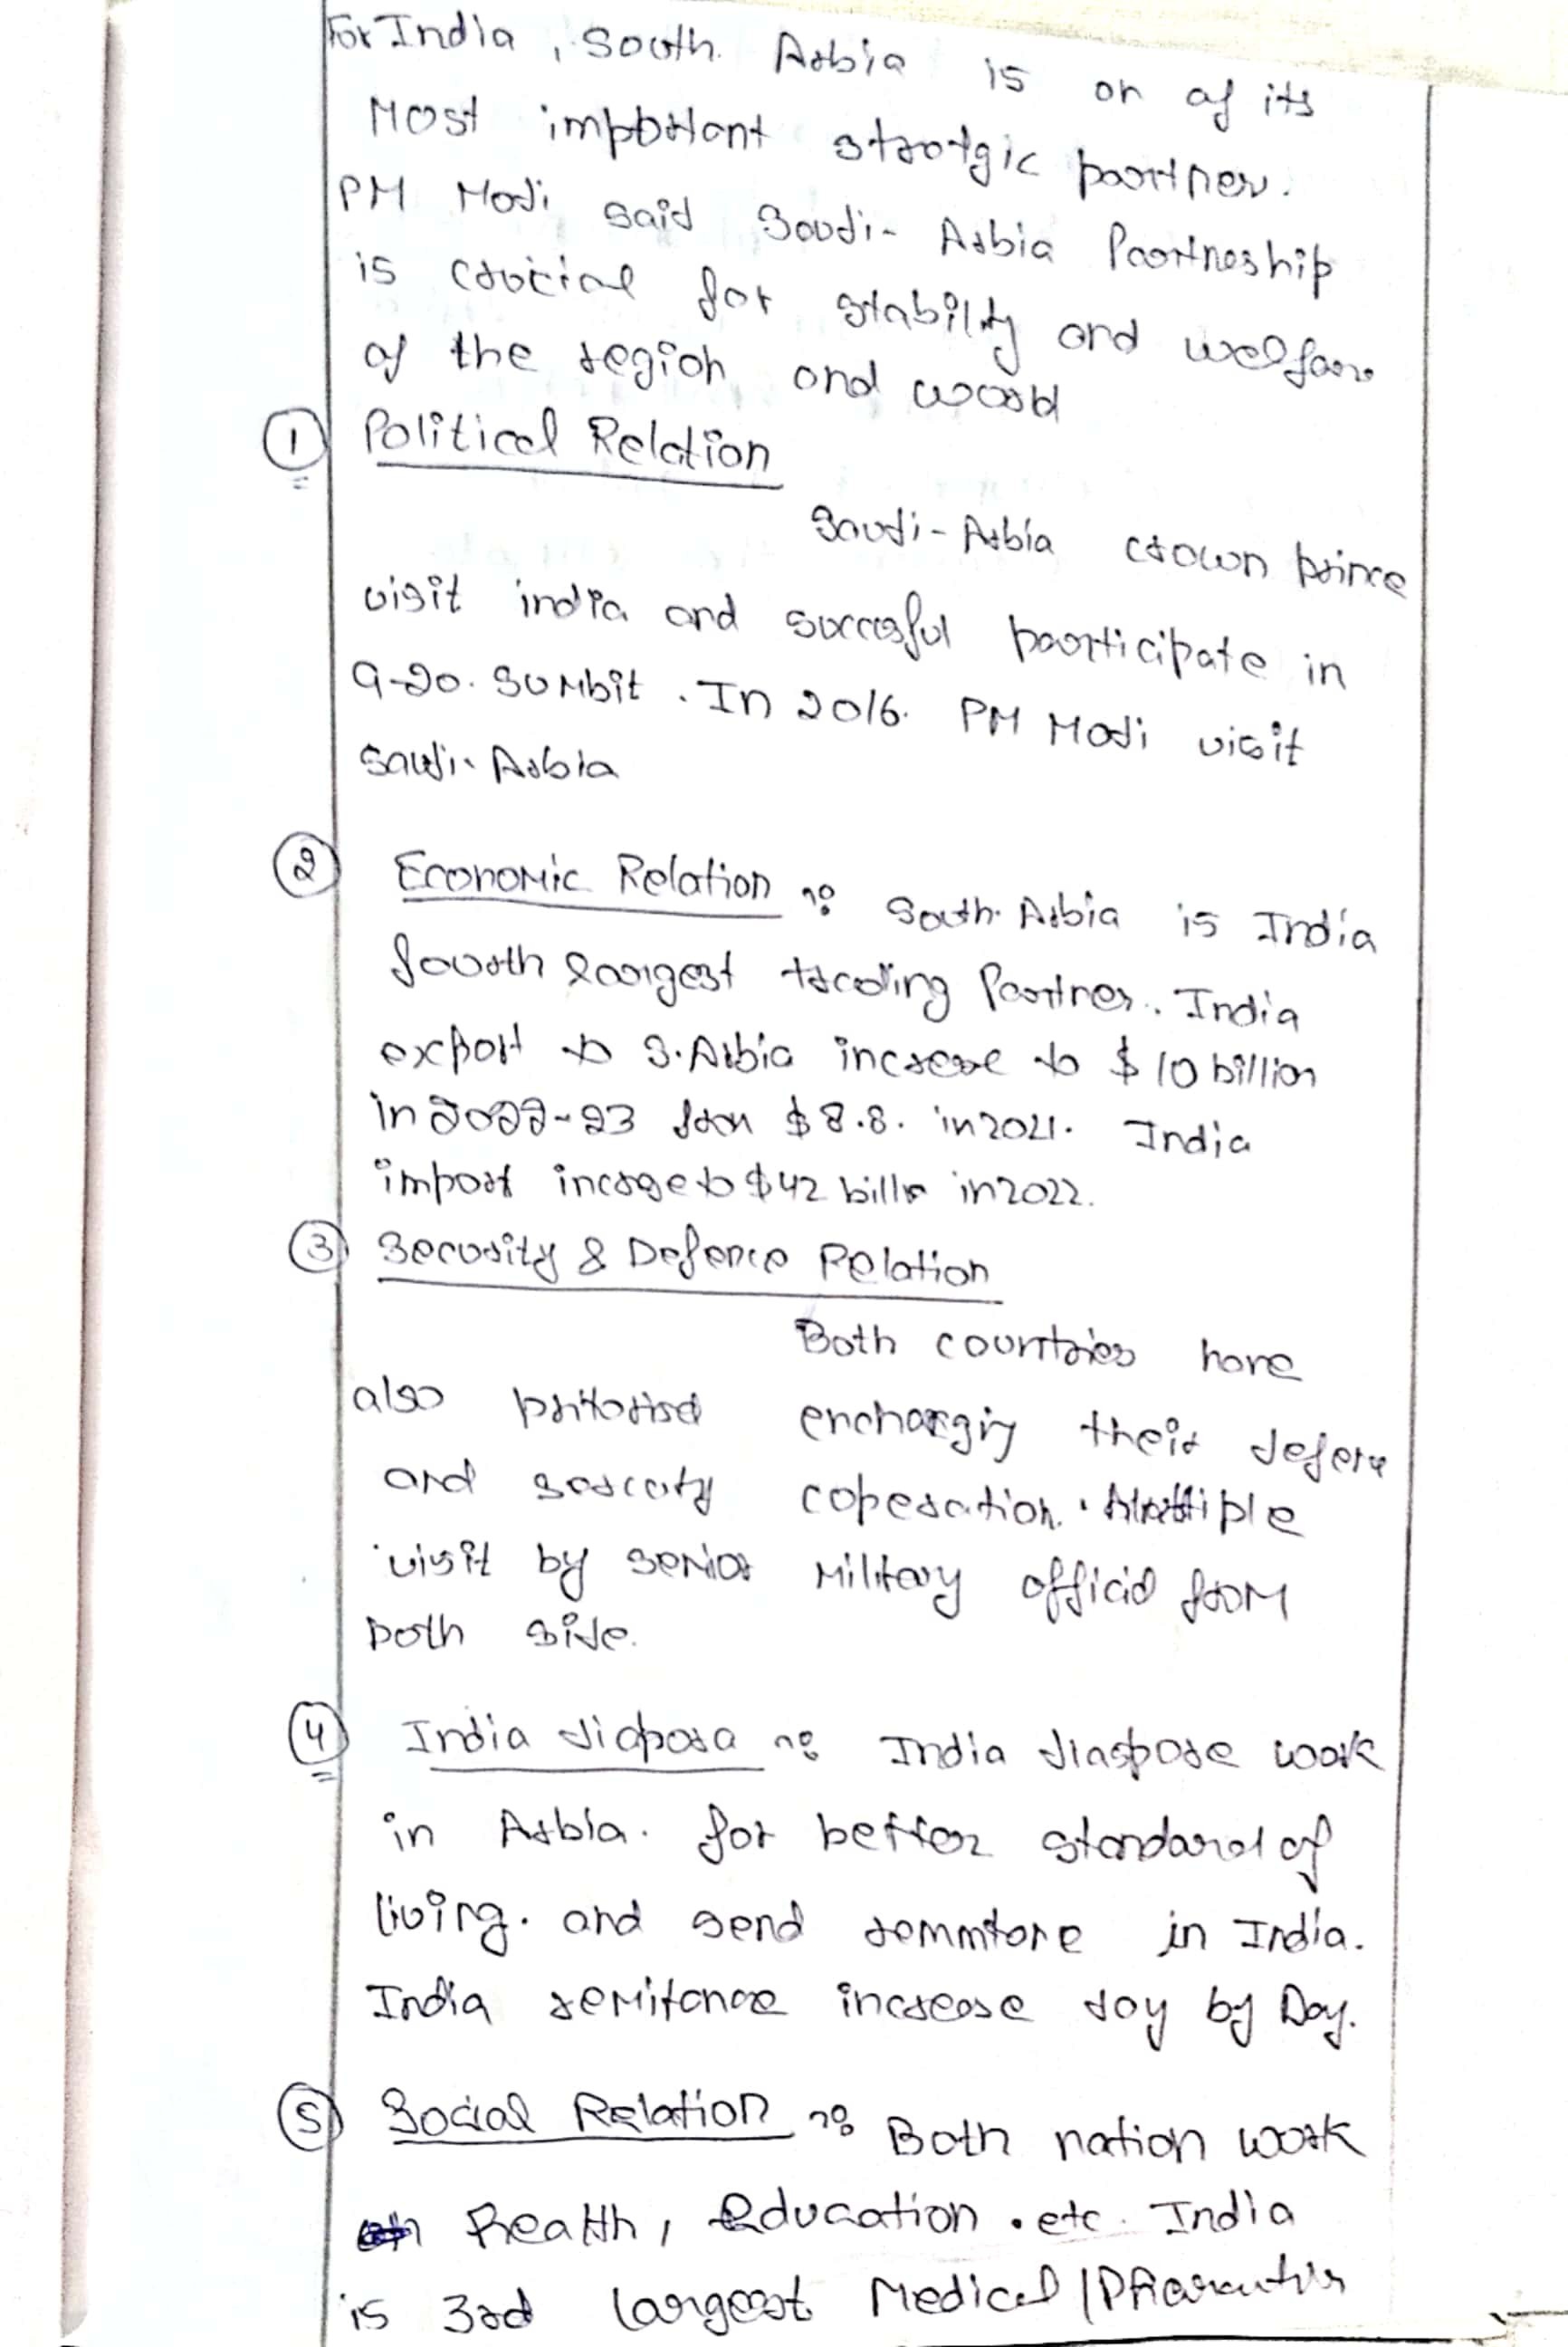 For India, South. Arbia is on of its
Most important strotgic partner.
PM Modi said Saudi-Arbia Partneship
is crucial for stability and welfare
of the region and world
① Political Relation
Saudi-Arbia crown prince
visit india and succesful participate in
G-20. Sumbit. In 2016. PM Modi visit
Saudi. Arbia
② Economic Relation :- South. Arbia is India
fourth largest trading Partner. India
export to S.Arbia increase to $ 10 billion
in 2022-23 from $ 8.8. in 2021. India
import increse to $42 billion in 2022.
③ Security & Defence Relation
Both countries have
also their defence
and coperation. Multiple
visit by senior Military official from
both side.
④ India diaposra :- India diaspore work
in Arbia. for better standard of
living. and send in India.
India remitance increase day by Day.
⑤ Social Relation :- Both nation work
on Health, Education. etc. India
is 3rd largest Medical /